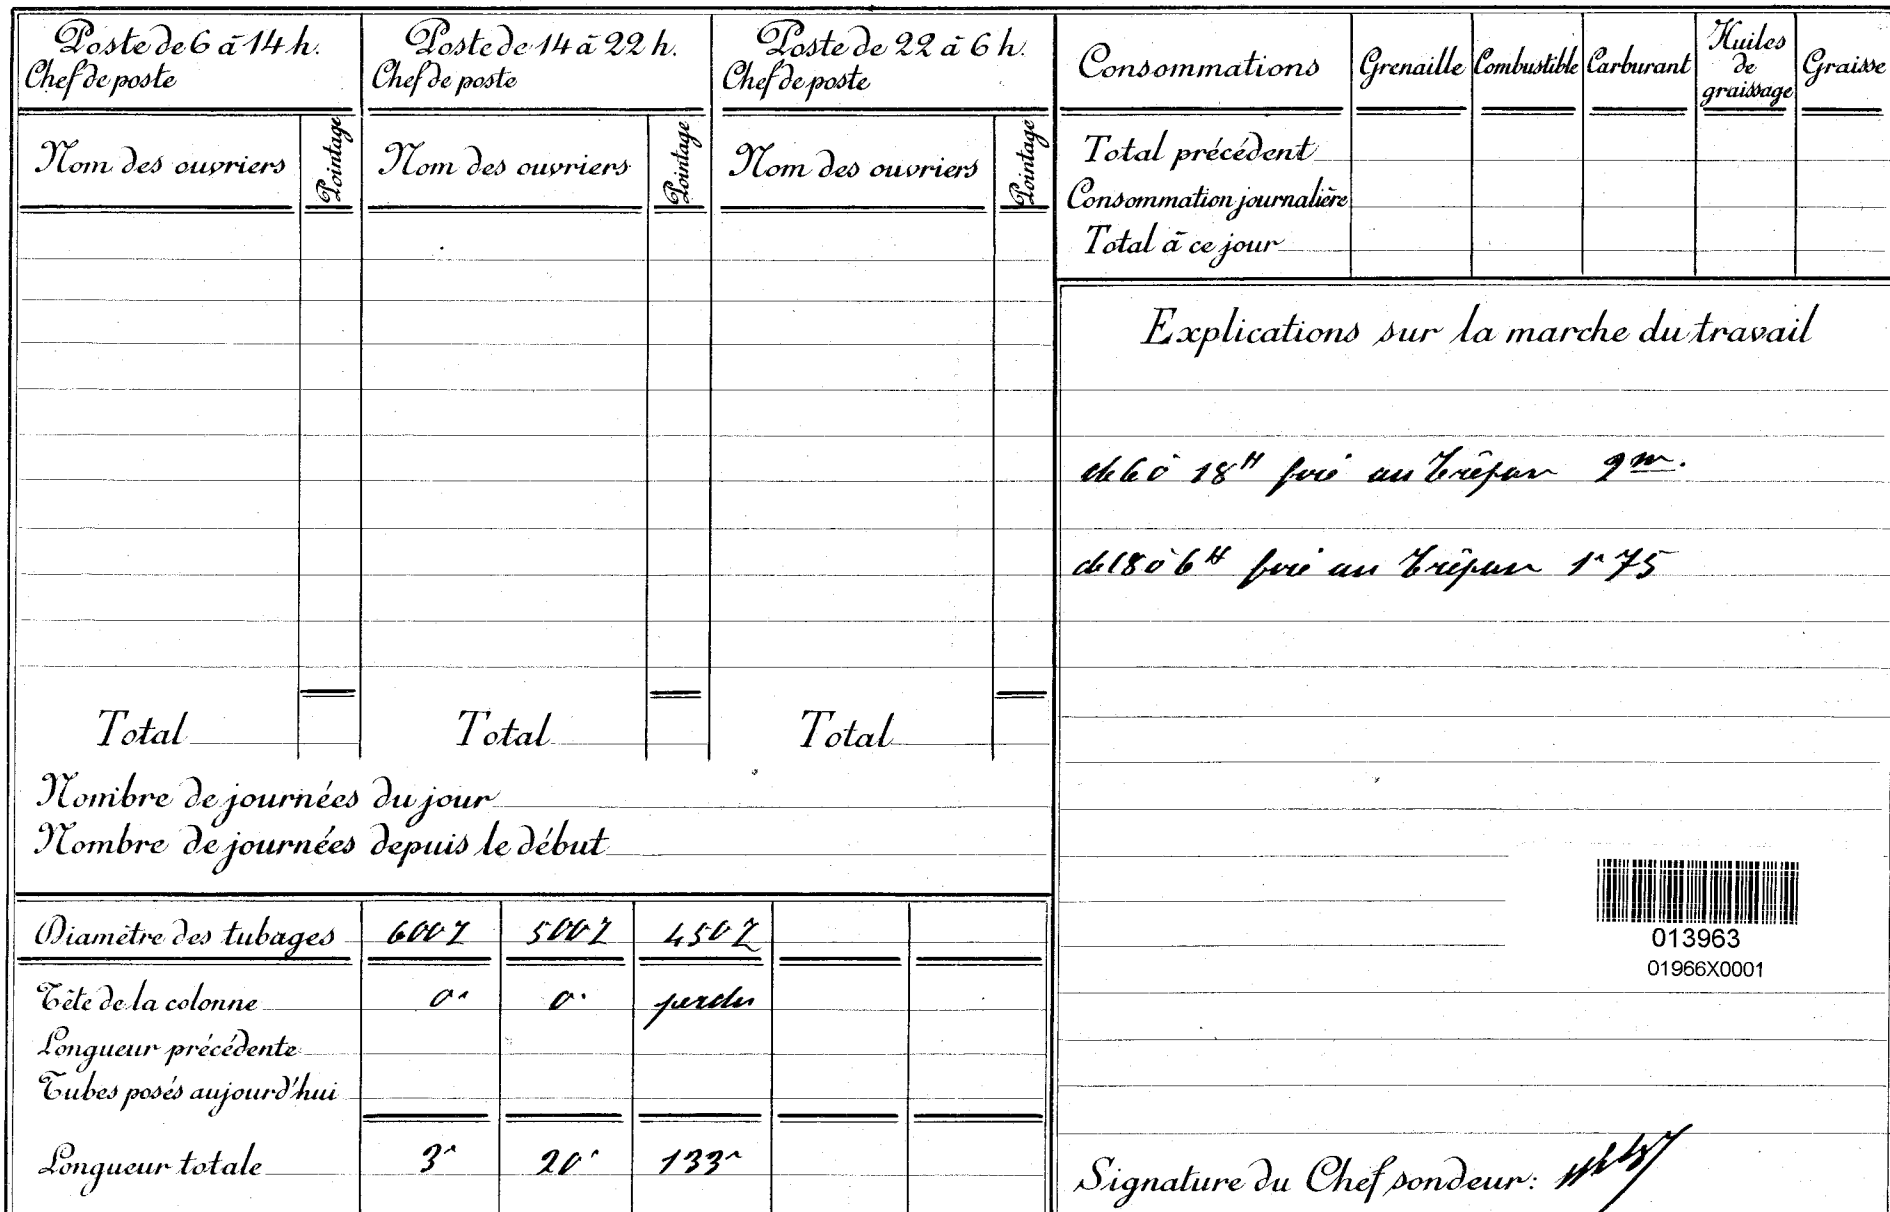 Poste de 6 à 14 h.
Chef de poste
Nom des ouvriers
Pointage
Total
Poste de 14 à 22 h.
Chef de poste
Nom des ouvriers
Pointage
Total
Poste de 22 à 6 h.
Chef de poste
Nom des ouvriers
Pointage
Total
Nombre de journées du jour
Nombre de journées depuis le début
Diamètre des tubages 600 500 450
Tête de la colonne 0m 0m perdu
Longueur précédente
Tubes posés aujourd'hui
Longueur totale 3m 20m 133m
Consommations Grenaille Combustible Carburant Huiles de graissage Graisse
Total précédent
Consommation journalière
Total à ce jour
Explications sur la marche du travail
de 6 à 18H foré au trépan 2m.
de 18 à 6H foré au trépan 1m75
013963
01966X0001
Signature du Chef sondeur: